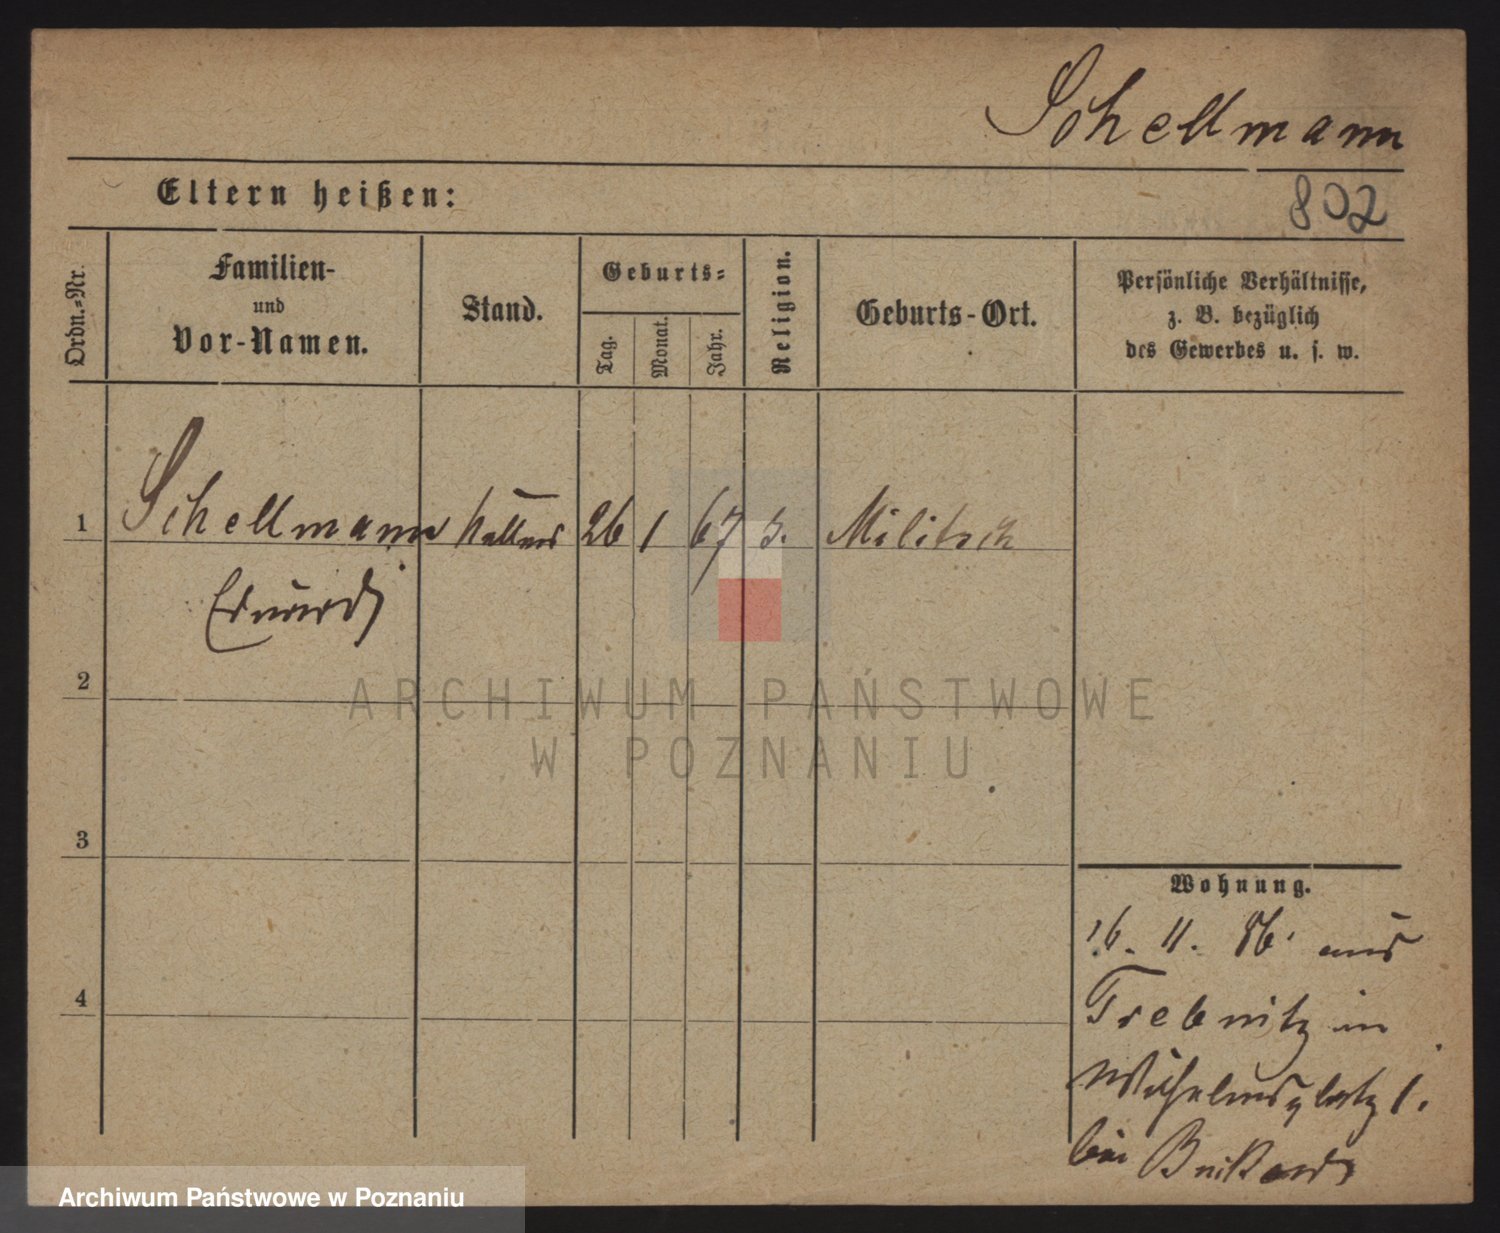 Schellmann
Eltern heißen:
802
Ordn.-Nr.
Familien-
und
Vor-Namen.
Stand.
Geburts-
Tag.
Monat.
Jahr.
Religion.
Geburts-Ort.
Persönliche Verhältnisse,
z. B. bezüglich
des Gewerbes u. s. w.
1
Schellmann Kellner 26 1 67 Militsch
Eduard
2
ARCHIWUM PAŃSTWOWE
W POZNANIU
3
Wohnung.
16. 11. 86. aus
4
Trebnitz in
Wilhelmsplatz 1.
bei
Archiwum Państwowe w Poznaniu